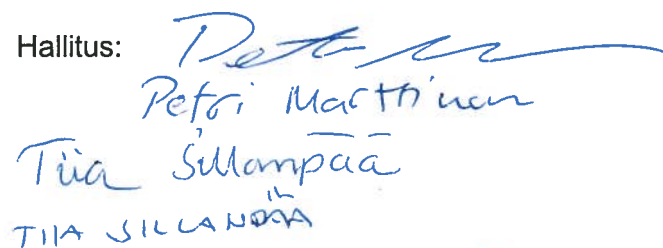 Hallitus:
Petri Marttinen
Tiia Sillanpää
TIIA SILLANPÄÄ